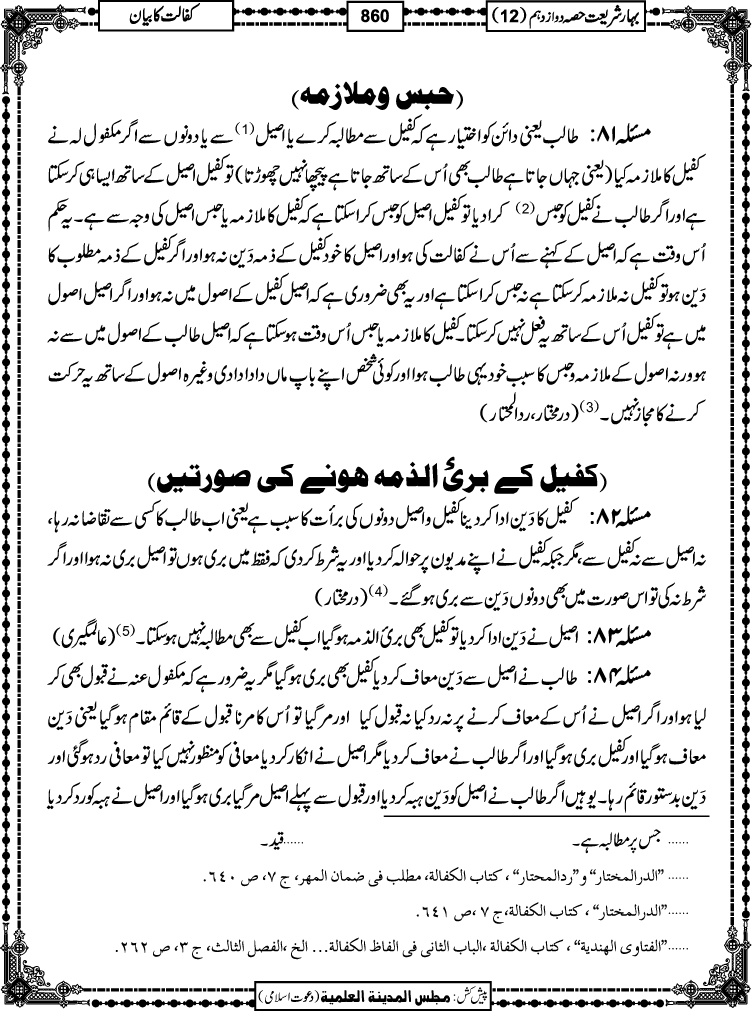 بہار شریعت حصہ دوازدہم (12)
860
کفالت کا بیان
(حبس و ملازمہ)
مسئلہ ۸۱: طالب یعنی دائن کو اختیار ہے کہ کفیل سے مطالبہ کرے یا اصیل (1) سے یا دونوں سے اگر مکفول لہ نے
کفیل کا ملازمہ کیا (یعنی جہاں جاتا ہے طالب بھی اُس کے ساتھ جاتا ہے پیچھا نہیں چھوڑتا) تو کفیل اصیل کے ساتھ ایسا ہی کرسکتا
ہے اور اگر طالب نے کفیل کو حبس (2) کرا دیا تو کفیل اصیل کو حبس کرا سکتا ہے کہ کفیل کا ملازمہ یا حبس اصیل کی وجہ سے ہے۔ یہ حکم
اُس وقت ہے کہ اصیل کے کہنے سے اُس نے کفالت کی ہو اور اصیل کا خود کفیل کے ذمہ دَین نہ ہو اور اگر کفیل کے ذمہ مطلوب کا
دَین ہو تو کفیل نہ ملازمہ کرسکتا ہے نہ حبس کرا سکتا ہے اور یہ بھی ضروری ہے کہ اصیل کفیل کے اصول میں نہ ہو اور اگر اصیل اصول
میں ہے تو کفیل اُس کے ساتھ یہ فعل نہیں کرسکتا۔ کفیل کا ملازمہ یا حبس اُس وقت ہوسکتا ہے کہ اصیل طالب کے اصول میں سے نہ
ہو ورنہ اصول کے ملازمہ و حبس کا سبب خود یہی طالب ہوا اور کوئی شخص اپنے باپ ماں دادا دادی وغیرہ اصول کے ساتھ یہ حرکت
کرنے کا مجاز نہیں۔ (3) (درمختار، ردالمحتار)
(کفیل کے برئ الذمہ ہونے کی صورتیں)
مسئلہ ۸۲: کفیل کا دَین ادا کر دینا کفیل و اصیل دونوں کی برأت کا سبب ہے یعنی اب طالب کا کسی سے تقاضا نہ رہا،
نہ اصیل سے نہ کفیل سے، مگر جبکہ کفیل نے اپنے مدیون پر حوالہ کر دیا اور یہ شرط کر دی کہ فقط میں بری ہوں تو اصیل بری نہ ہوا اور اگر
شرط نہ کی تو اس صورت میں بھی دونوں دَین سے بری ہوگئے۔ (4) (درمختار)
مسئلہ ۸۳: اصیل نے دَین ادا کر دیا تو کفیل بھی برئ الذمہ ہوگیا اب کفیل سے بھی مطالبہ نہیں ہوسکتا۔ (5) (عالمگیری)
مسئلہ ۸۴: طالب نے اصیل سے دَین معاف کر دیا کفیل بھی بری ہوگیا مگر یہ ضرور ہے کہ مکفول عنہ نے قبول بھی کر
لیا ہو اور اگر اصیل نے اُس کے معاف کرنے پر نہ رد کیا نہ قبول کیا اور مرگیا تو اُس کا مرنا قبول کے قائم مقام ہوگیا یعنی دَین
معاف ہوگیا اور کفیل بری ہوگیا اور اگر طالب نے معاف کر دیا مگر اصیل نے انکار کر دیا معافی کو منظور نہیں کیا تو معافی رد ہوگئی اور
دَین بدستور قائم رہا۔ یوہیں اگر طالب نے اصیل کو دَین ہبہ کر دیا اور قبول سے پہلے اصیل مرگیا بری ہوگیا اور اصیل نے ہبہ کو رد کر دیا
...... جس پر مطالبہ ہے۔ ......قید۔
...... ”الدرالمختار“ و”ردالمحتار“، کتاب الکفالۃ، مطلب فی ضمان المہر، ج ٧، ص ٦٤٠.
......”الدرالمختار“ ، کتاب الکفالۃ،ج ٧ ،ص ٦٤١.
......”الفتاوی الھندیۃ“، کتاب الکفالۃ ،الباب الثانی فی الفاظ الکفالۃ... الخ ،الفصل الثالث، ج ٣، ص ٢٦٢.
پیش کش: مجلس المدینۃ العلمیۃ (دعوت اسلامی)